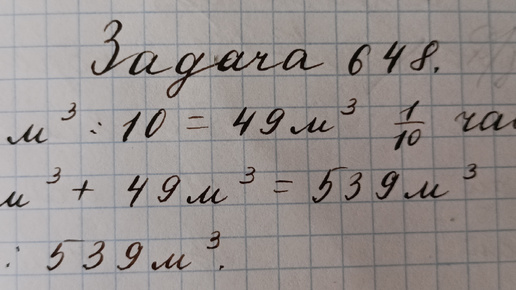 Задача 648.
м³ : 10 = 49м³ 1/10 час
м³ + 49м³ = 539м³
: 539м³.